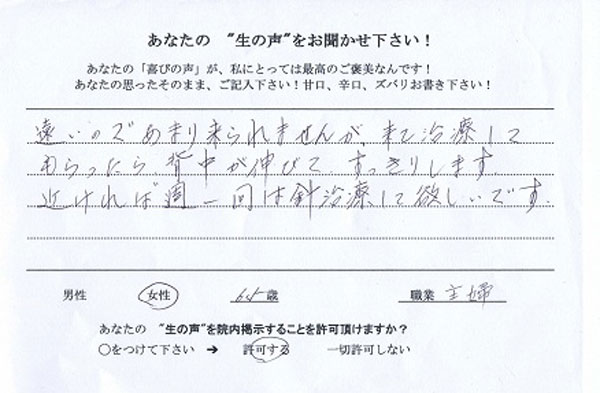 あなたの "生の声"をお聞かせ下さい！
あなたの「喜びの声」が、私にとっては最高のご褒美なんです！
あなたの思ったそのまま、ご記入下さい！甘口、辛口、ズバリお書き下さい！
遠いのであまり来られませんが、来て治療して
もらったら、背中が伸びて、すっきりします。
近ければ週一回は針治療して欲しいです。
男性 女性 65歳 職業 主婦
あなたの "生の声"を院内掲示することを許可頂けますか？
〇をつけて下さい ➔ 許可する 一切許可しない